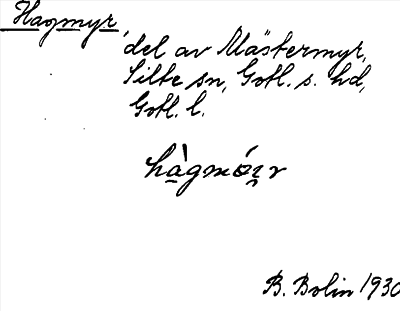 Hagmyr,
del av Mästermyr,
Silte sn, Gotl. s. hd,
Gotl. l.
hàgmóɪr
B. Bolin 1930